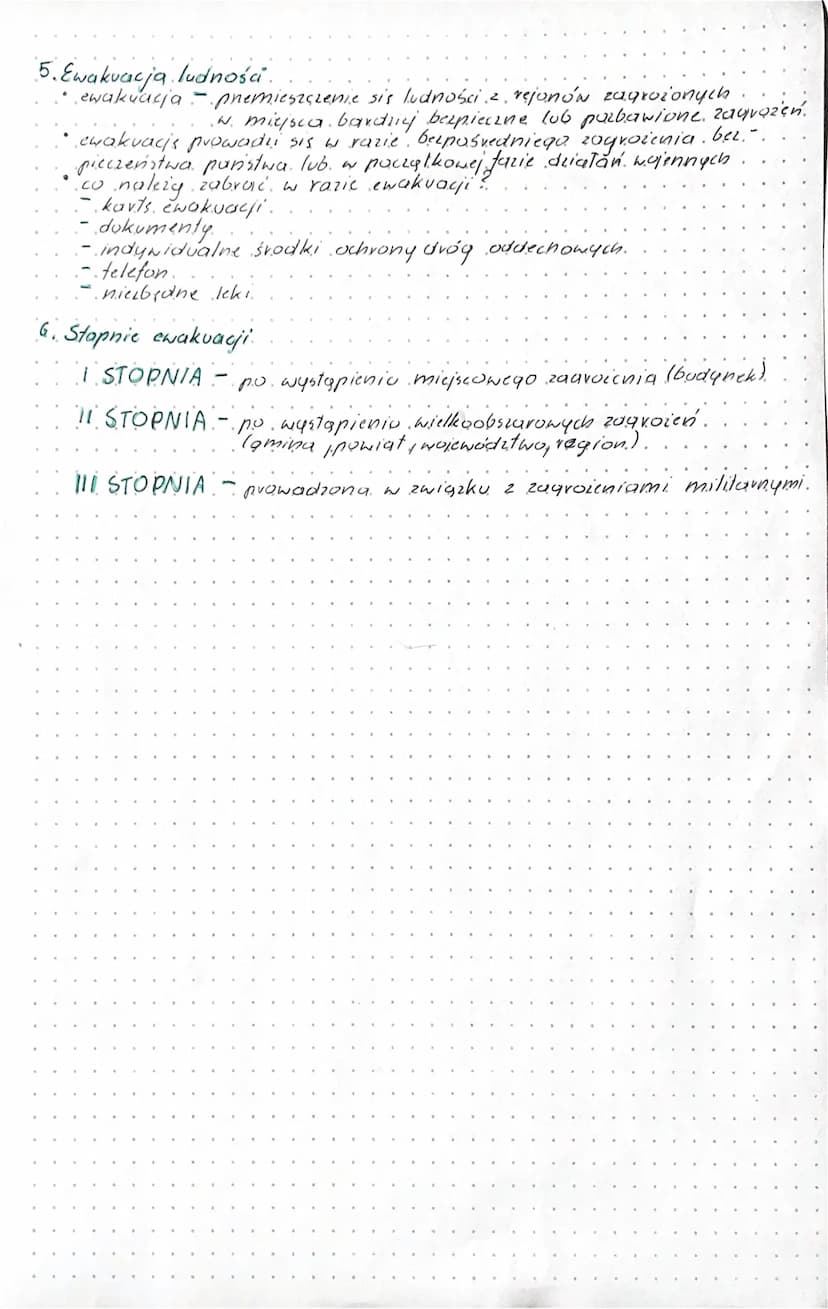 5. Ewakuacja ludności
• ewakuacja – przemieszczenie się ludności z rejonów zagrożonych
w miejsca bardziej bezpieczne lub pozbawione zagrożeń.
• ewakuację prowadzi się w razie bezpośredniego zagrożenia bez-
pieczeństwa państwa lub w początkowej fazie działań wojennych
• co należy zabrać w razie ewakuacji?
– kartę ewakuacji
– dokumenty
– indywidualne środki ochrony dróg oddechowych.
– telefon
– niezbędne leki
6. Stopnie ewakuacji
I STOPNIA – po wystąpieniu miejscowego zagrożenia (budynek)
II STOPNIA – po wystąpieniu wielkoobszarowych zagrożeń
(gmina, powiat, województwo, region)
III STOPNIA – prowadzona w związku z zagrożeniami militarnymi.